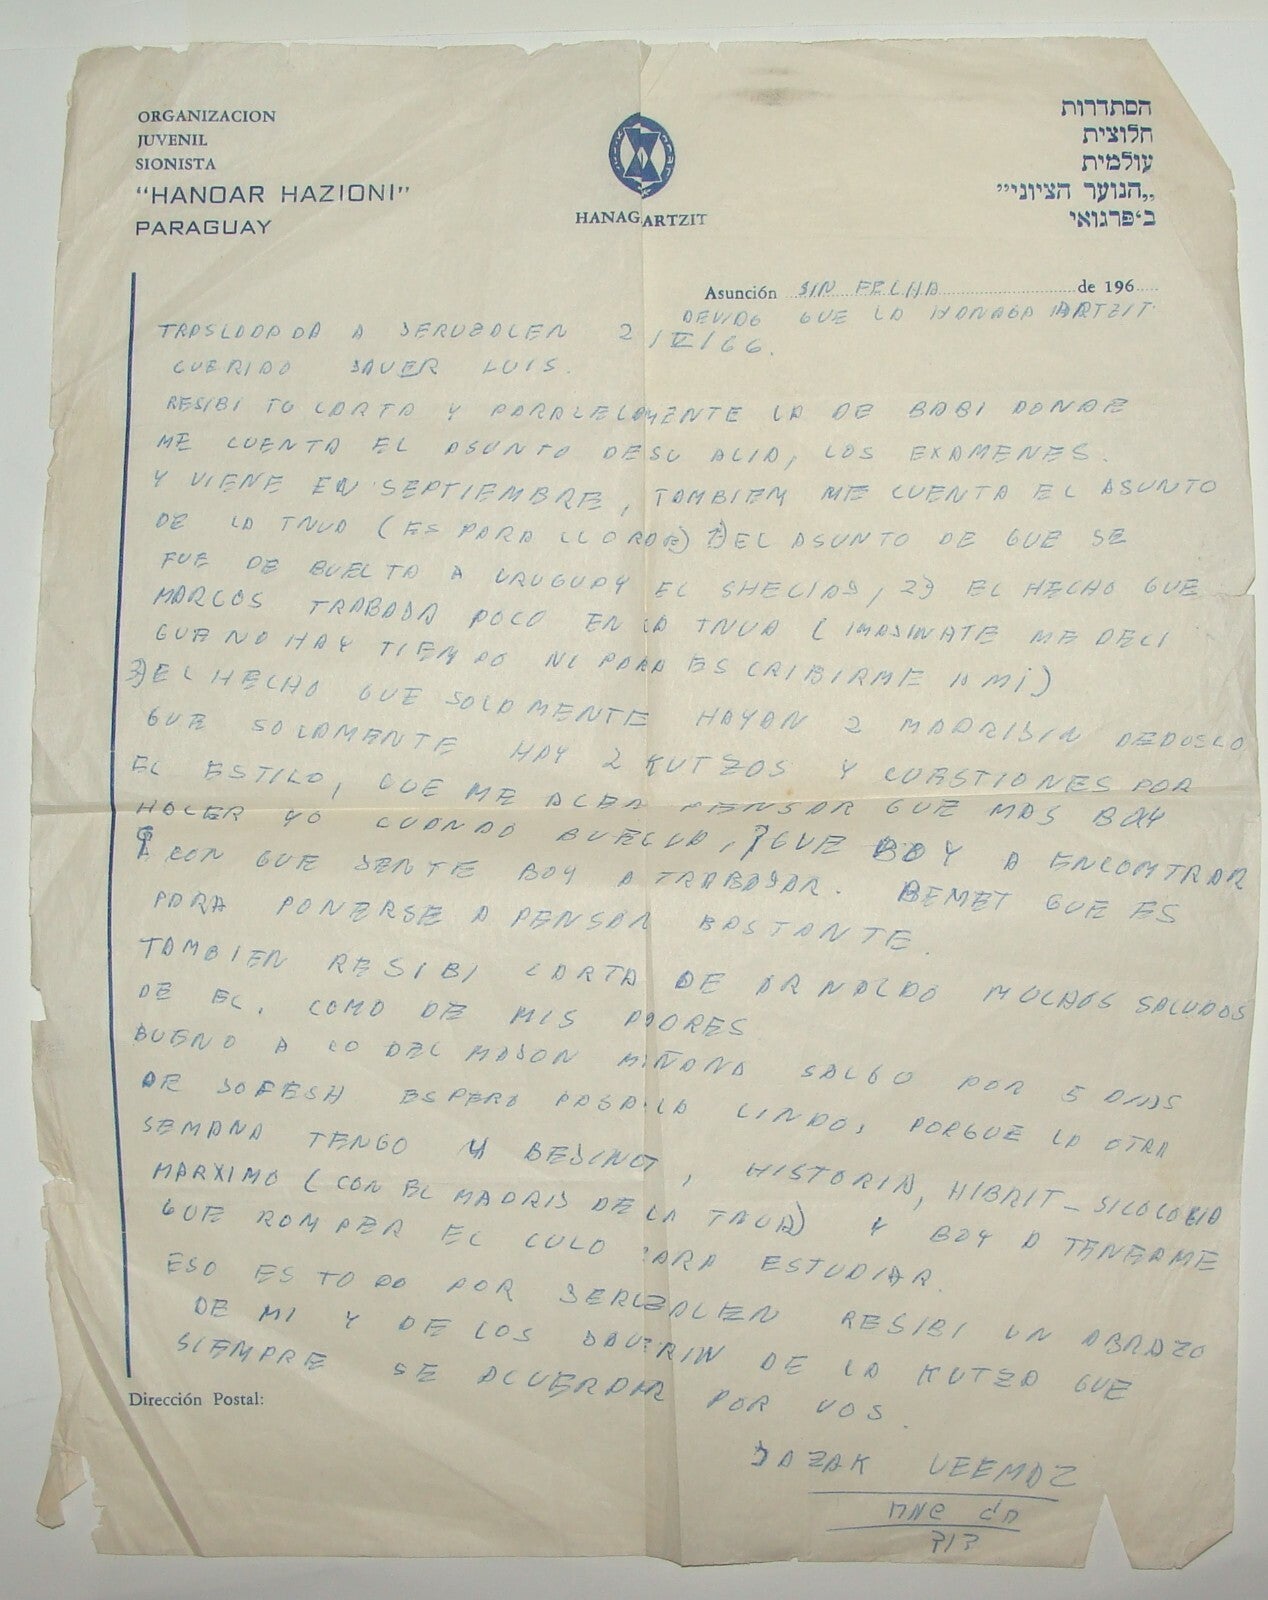 ORGANIZACION
JUVENIL
SIONISTA
"HANOAR HAZIONI"
PARAGUAY
HANAGARTZIT
הסתדרות
חלוצית
עולמית
„הנוער הציוני”
ב׳פרגואי
Asunción SIN FECHA de 196
DEVIDO QUE LA HANAGA ARTZIT
TRASLADADA A JERUZALEN 2/V/66.
QUERIDO JAVER LUIS.
RESIBI TU CARTA Y PARALELAMENTE LA DE BABI DONDE
ME CUENTA EL ASUNTO DE SU ALIA, LOS EXAMENES.
Y VIENE EN SEPTIEMBRE, TAMBIEM ME CUENTA EL ASUNTO
DE LA TNUA (ES PARA LLORAR) 1) EL ASUNTO DE QUE SE
FUE DE BUELTA A URUGUAY EL SHELIAJ, 2) EL HECHO QUE
MARCOS TRABAJA POCO EN LA TNUA (IMAJINATE ME DECI
QUE NO HAY TIEMPO NI PARA ESCRIBIRME A MI)
3) EL HECHO QUE SOLAMENTE HAYAN 2 MADRIJIN DEDUSCO
QUE SOLAMENTE HAY 2 KUTZOS Y CUESTIONES POR
EL ESTILO, QUE ME ACEN PENSAR QUE MAS BOY
HACER YO CUANDO BUELVA, QUE BOY A ENCOMTRAR
CON QUE JENTE BOY A TRABAJAR. BEMET QUE ES
PARA PONERSE A PENSAR BASTANTE.
TAMBIEN RESIBI CARTA DE ARNALDO MUCHOS SALUDOS
DE EL. COMO DE MIS PADRES
BUENO A LO DEL MAJON MAÑANA SALGO POR 5 DIAS
DE JOFESH ESPERO PASARLA LINDO, PORQUE LA OTRA
SEMANA TENGO BEJINOT, HISTORIA, HIBRIT - SICOLOGIA
MARXIMO (CON EL MADRIJ DE LA TAUA) Y BOY A TENERME
QUE ROMPER EL CULO PARA ESTUDIAR.
ESO ES TODO POR JERUZALEN RESIBI UN ABRAZO
DE MI Y DE LOS JAVERIN DE LA KUTZA QUE
SIEMPRE SE ACUERDAN POR VOS.
JAZAK VEEMAZ
Dirección Postal: